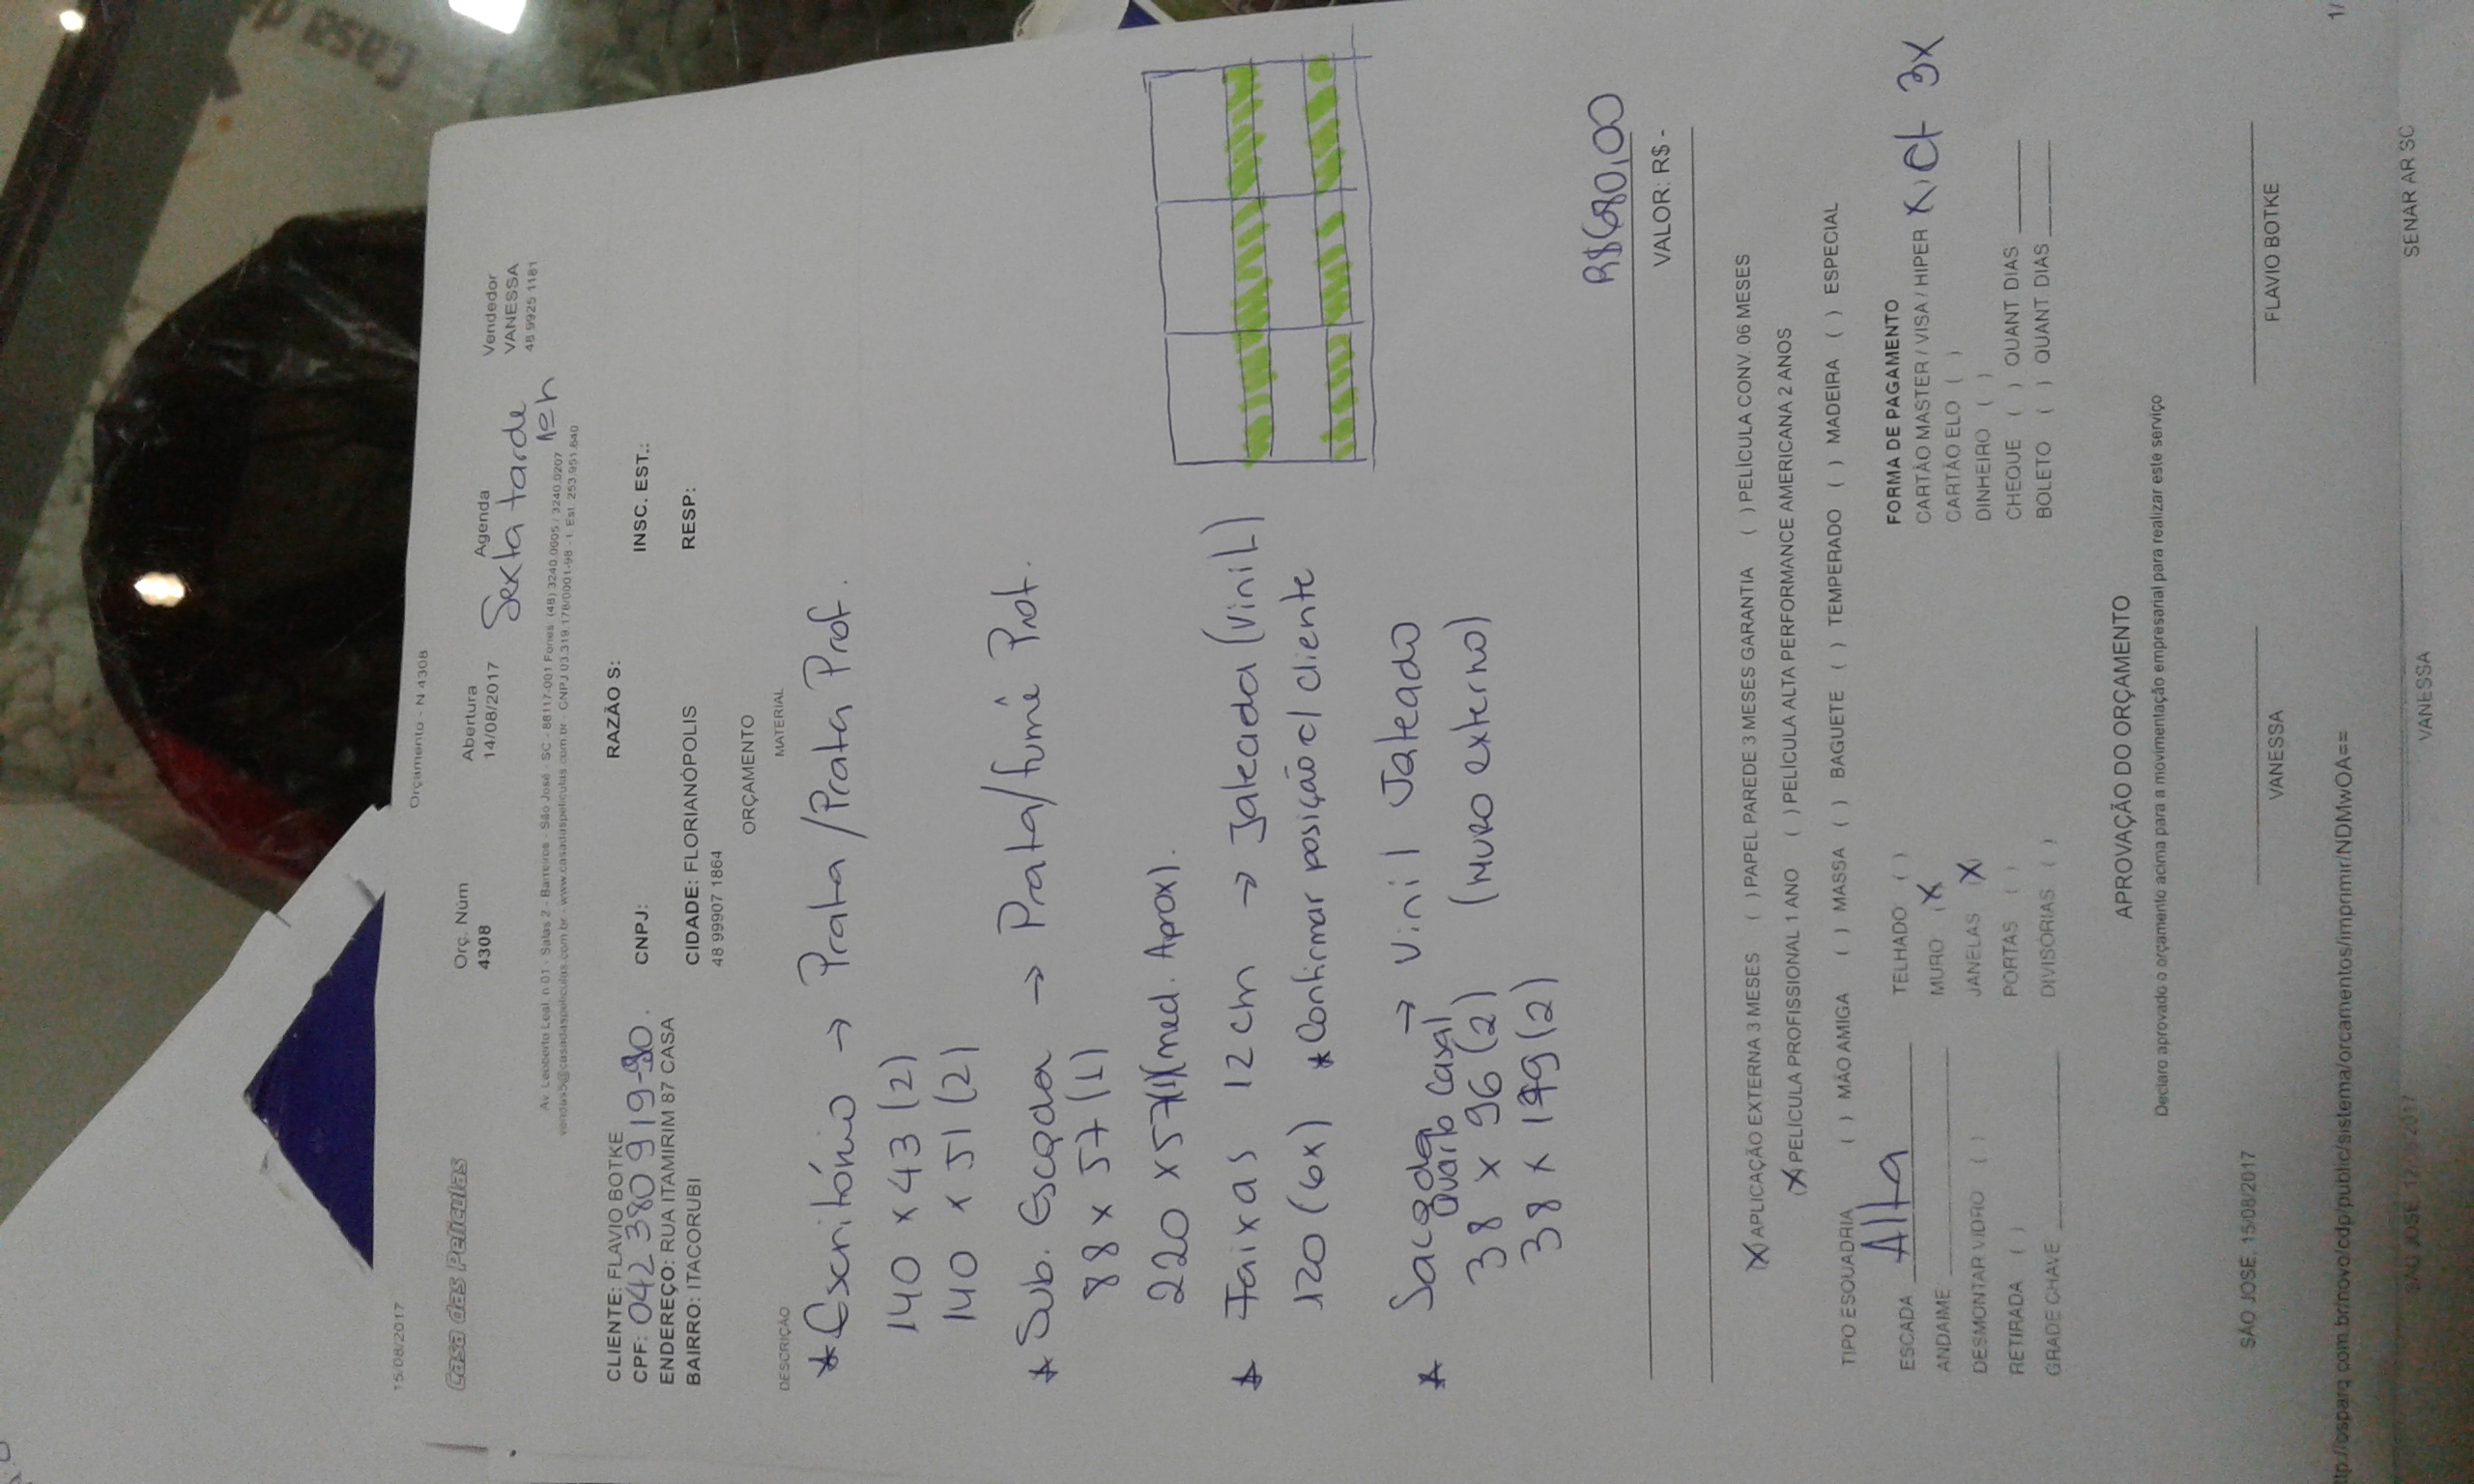 Casa d
15/08/2017
Orçamento - N 4308
Casa das Películas
Orç. Núm
4308
Abertura
14/08/2017
Agenda
Sexta tarde
Vendedor
VANESSA
48 9925 1181
Av. Leoberto Leal n 01 - Salas 2 - Barreiros - São José - SC - 88117-001 Fones: (48) 3240.0005 / 3240.0207
vendas5@casadaspeliculas.com.br - www.casadaspeliculas.com.br - CNPJ 03.319.178/0001-98 - I. Est. 253.951.640
CLIENTE: FLAVIO BOTKE
RAZÃO S:
CPF: 042 380 919-90.
CNPJ:
INSC. EST.:
ENDEREÇO: RUA ITAMIRIM 87 CASA
BAIRRO: ITACORUBI
CIDADE: FLORIANÓPOLIS
RESP:
48 99907 1864
ORÇAMENTO
DESCRIÇÃO
MATERIAL
* Escritório → Prata/Prata Prof.
140 x 43 (2)
140 x 51 (2)
* Sub. Escada → Prata/fumê Prof.
88 x 57 (1)
220 x 57 (1) (med. Aprox).
* Faixas 12 cm → Jateada (Vinil)
120 (6x) * Confirmar posição c/ cliente
* Sacada Quarto Casal → Vinil Jateado
38 x 96 (2) (Muro externo)
38 x 149 (2)
R$ 680,00
VALOR: R$ -
(X) APLICAÇÃO EXTERNA 3 MESES ( ) PAPEL PAREDE 3 MESES GARANTIA ( ) PELÍCULA CONV. 06 MESES
(X) PELICULA PROFISSIONAL 1 ANO ( ) PELÍCULA ALTA PERFORMANCE AMERICANA 2 ANOS
TIPO ESQUADRIA ( ) MÃO AMIGA ( ) MASSA ( ) BAGUETE ( ) TEMPERADO ( ) MADEIRA ( ) ESPECIAL
ESCADA Alta
ANDAIME:
DESMONTAR VIDRO ( )
RETIRADA ( )
GRADE CHAVE
TELHADO ( )
MURO (X)
JANELAS (X)
PORTAS ( )
DIVISÓRIAS ( )
FORMA DE PAGAMENTO
CARTÃO MASTER / VISA / HIPER (X) Ct 3X
CARTÃO ELO ( )
DINHEIRO ( )
CHEQUE ( ) QUANT DIAS
BOLETO ( ) QUANT DIAS
APROVAÇÃO DO ORÇAMENTO
Declaro aprovado o orçamento acima para a movimentação empresarial para realizar este serviço
SÃO JOSÉ, 15/08/2017
VANESSA
FLAVIO BOTKE
ttp://osparq.com.br/novo/cdp/public/sistema/orcamentos/imprimir/NDMwOA==
1/
VANESSA
SENAR AR SC